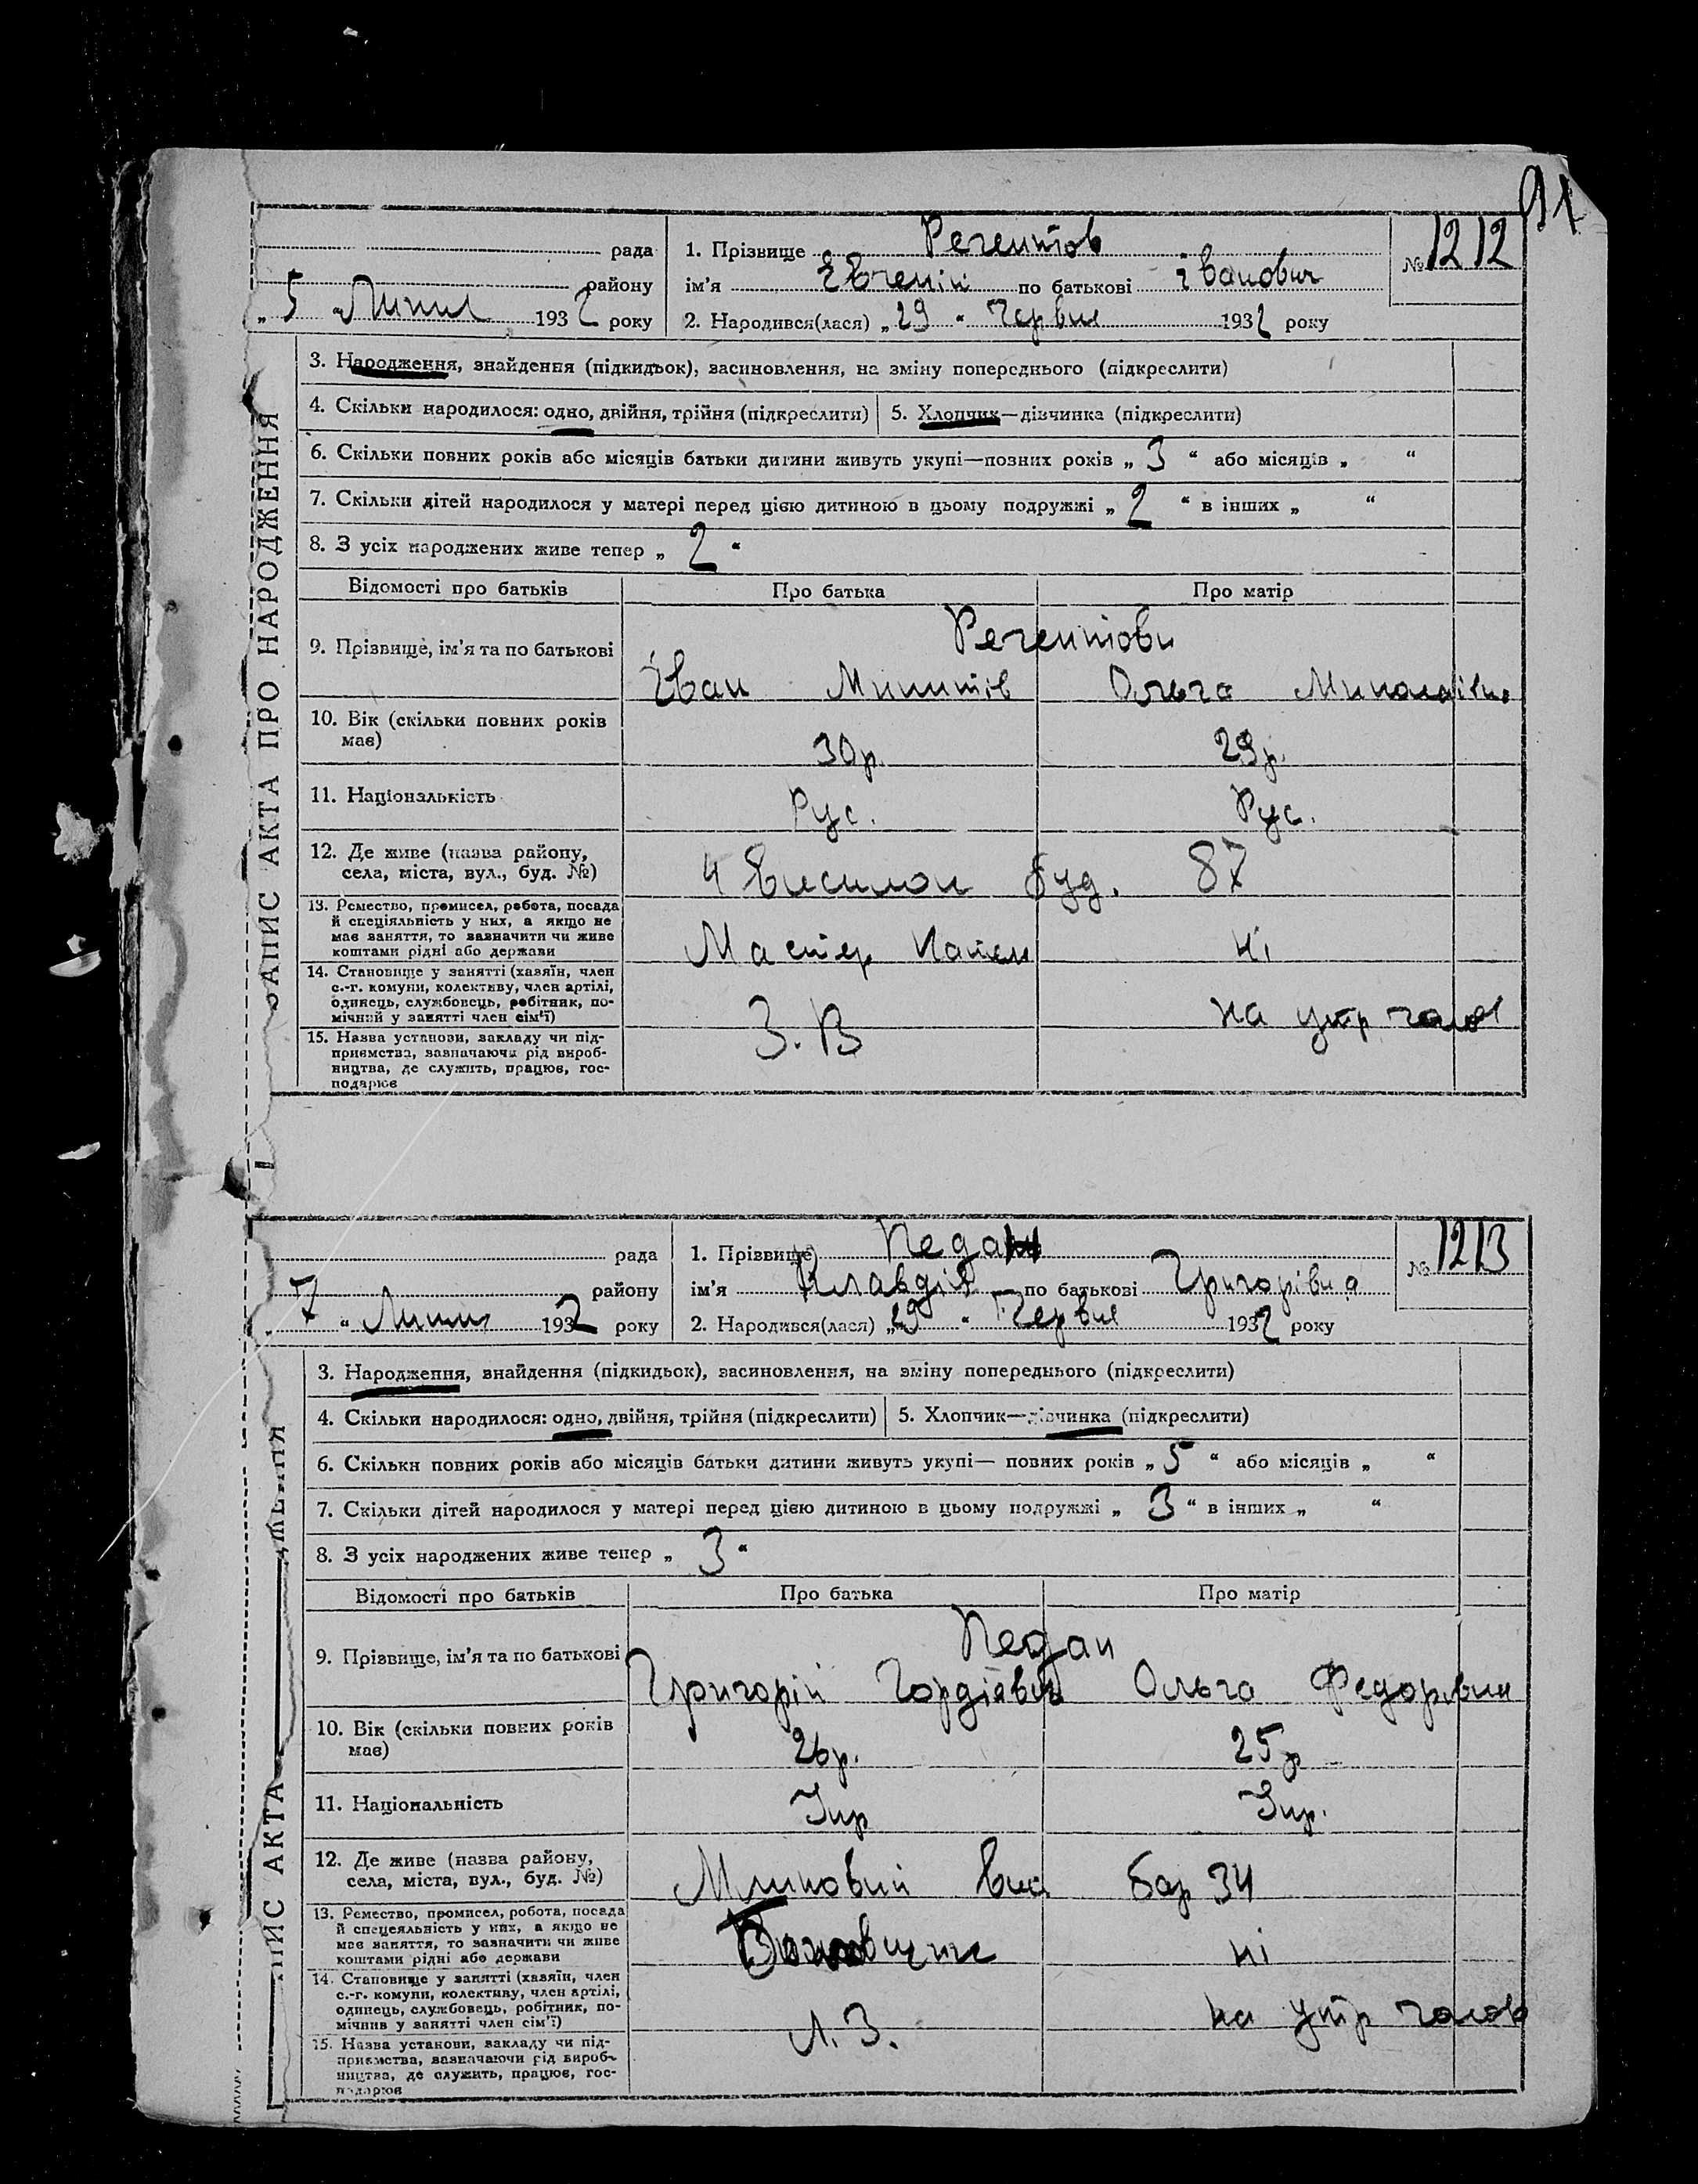 91
рада
1. Прізвище Регентов
№ 1212
району
ім'я Євгеній по батькові Іванович
„ 5 “ Липня 1932 року
2. Народився(лася) „ 29 “ Червня 1932 року
ЗАПИС АКТА ПРО НАРОДЖЕННЯ
3. Народження, знайдення (підкидьок), засиновлення, на зміну попереднього (підкреслити)
4. Скільки народилося: одно, двійня, трійня (підкреслити)
5. Хлопчик—дівчинка (підкреслити)
6. Скільки повних років або місяців батьки дитини живуть укупі—повних років „ 3 “ або місяців „ “
7. Скільки дітей народилося у матері перед цією дитиною в цьому подружжі „ 2 “ в інших „ “
8. З усіх народжених живе тепер „ 2 “
Відомості про батьків
Про батька
Про матір
9. Прізвище, ім'я та по батькові
Регентови
Іван
Ольга Миколаївна
10. Вік (скільки повних років має)
30р.
29р.
11. Національність
Рус.
Рус.
12. Де живе (назва району, села, міста, вул., буд. №)
4 буд. 87
13. Ремество, промисел, робота, посада й спеціяльність у них, а якщо не має заняття, то зазначити чи живе коштами рідні або держави
Мастер
ні
14. Становище у занятті (хазяїн, член с.-г. комуни, колективу, член артілі, одинець, службовець, робітник, помічний у занятті член сім'ї)
на утр
15. Назва установи, закладу чи підприємства, зазначаючи рід виробництва, де служить, працює, господарює
З. В
рада
1. Прізвище Педан
№ 1213
району
ім'я Клавдія по батькові Григорівна
7 “ Липня 1932 року
2. Народився(лася) „ 29 “ Червня 1932 року
3. Народження, знайдення (підкидьок), засиновлення, на зміну попереднього (підкреслити)
4. Скільки народилося: одно, двійня, трійня (підкреслити)
5. Хлопчик—дівчинка (підкреслити)
6. Скільки повних років або місяців батьки дитини живуть укупі— повних років „ 5 “ або місяців „ “
7. Скільки дітей народилося у матері перед цією дитиною в цьому подружжі „ 3 “ в інших „ “
8. З усіх народжених живе тепер „ 3 “
Відомості про батьків
Про батька
Про матір
9. Прізвище, ім'я та по батькові
Педан
Григорій Гордієвич
Ольга Федорівна
10. Вік (скільки повних років має)
26р.
25р
11. Національність
Укр
Укр.
12. Де живе (назва району, села, міста, вул., буд. №)
Млиновий вис бар 34
13. Ремество, промисел, робота, посада й спецеяльність у них, а якщо не має заняття, то зазначити чи живе коштами рідні або держави
ні
14. Становище у занятті (хазяїн, член с.-г. комуни, колективу, член артілі, одинець, службовець, робітник, помічнив у занятті член сім'ї)
на утр
15. Назва установи, закладу чи підприємства, зазначаючи рід виробництва, де служить, працює, господарює
Л. З.